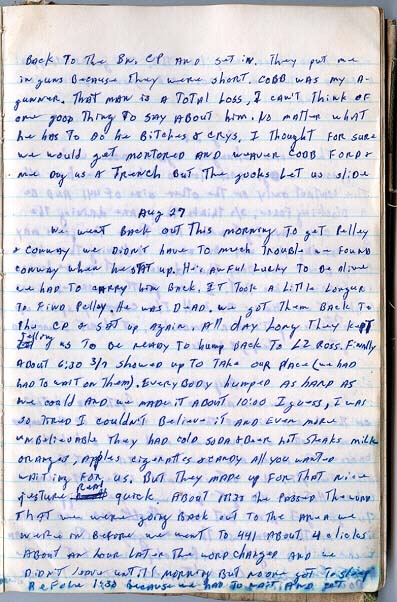 BACK TO THE BN. CP AND SET IN. THEY PUT ME
IN GUNS BECAUSE THEY WERE SHORT. COBB WAS MY A-
GUNNER. THAT MAN IS A TOTAL LOSS, I CAN'T THINK OF
ONE GOOD THING TO SAY ABOUT HIM. NO MATTER WHAT
HE HAS TO DO HE BITCHES & CRYS. I THOUGHT FOR SURE
WE WOULD GET MORTORED AND WEAVER COBB FORD &
ME DUG US A TRENCH BUT THE GOOKS LET US SLIDE
AUG 27
WE WENT BACK OUT THIS MORNING TO GET PELLEY
& CONWAY WE DIDN'T HAVE TO MUCH TROUBLE WE FOUND
CONWAY WHEN HE SAT UP. HE'S AWFUL LUCKY TO BE ALIVE
WE HAD TO CARRY HIM BACK. IT TOOK A LITTLE LONGER
TO FIND PELLEY. HE WAS DEAD. WE GOT THEM BACK TO
THE CP & SET UP AGAIN. ALL DAY LONG THEY KEPT
TELLING US TO BE READY TO HUMP BACK TO LZ ROSS. FINALLY
ABOUT 6:30 3/7 SHOWED UP TO TAKE OUR PLACE (WE HAD
HAD TO WAIT ON THEM). EVERYBODY HUMPED AS HARD AS
WE COULD AND WE MADE IT ABOUT 10:00 I GUESS, I WAS
SO TIRED I COULDN'T BELIEVE IT AND EVEN MORE
UNBELIEVABLE THEY HAD COLD SODA & BEER HOT STEAKS MILK
ORANGES, APPLES CIGERATTES & CANDY ALL YOU WANTED
WAITING FOR US. BUT THEY MADE UP FOR THAT NICE
JESTURE REAL QUICK. ABOUT 11:30 THE PASSED THE WORD
THAT WE WERE GOING BACK OUT TO THE AREA WE
WERE IN BEFORE WE WENT TO 441 ABOUT 4 CLICKS
ABOUT AN HOUR LATER THE WORD CHANGED AND WE
DIDN'T LEAVE UNTIL MORNING BUT NO ONE GOT TO SLEEP
BEFORE 1:30 BECAUSE WE HAD TO WAIT AND GET